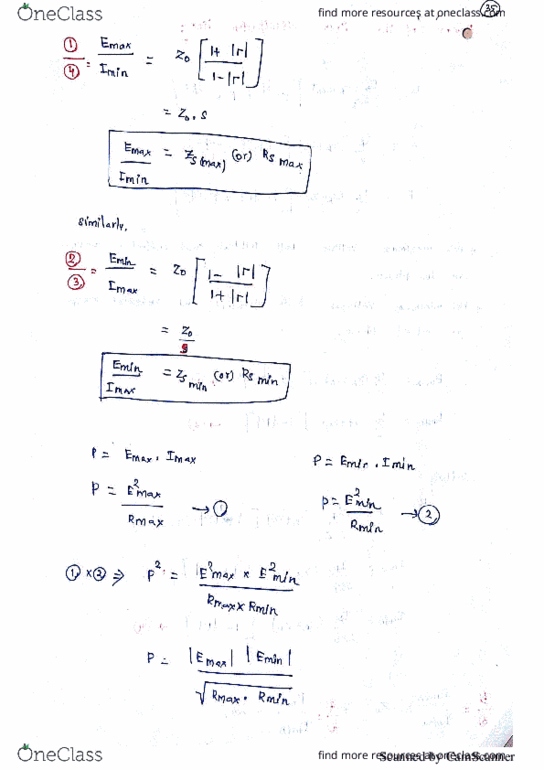 OneClass
find more resources at oneclass.com
35
①/④ = Emax/Imin = Z0 [1+ |r| / 1-|r|]
= Z0 . s
Emax/Imin = Zs(max) (or) Rs max
similarly,
②/③ = Emin/Imax = Z0 [1- |r| / 1+ |r|]
= Z0/s
Emin/Imax = Zs min (or) Rs min
P = Emax . Imax
P = Emin . Imin
P = E²max/Rmax → ①
P = E²min/Rmin → ②
① x ② ⇒ P² = E²max x E²min / Rmax x Rmin
P = |Emax| |Emin| / √Rmax . Rmin
OneClass
find more resources at oneclass.com
Scanned by CamScanner